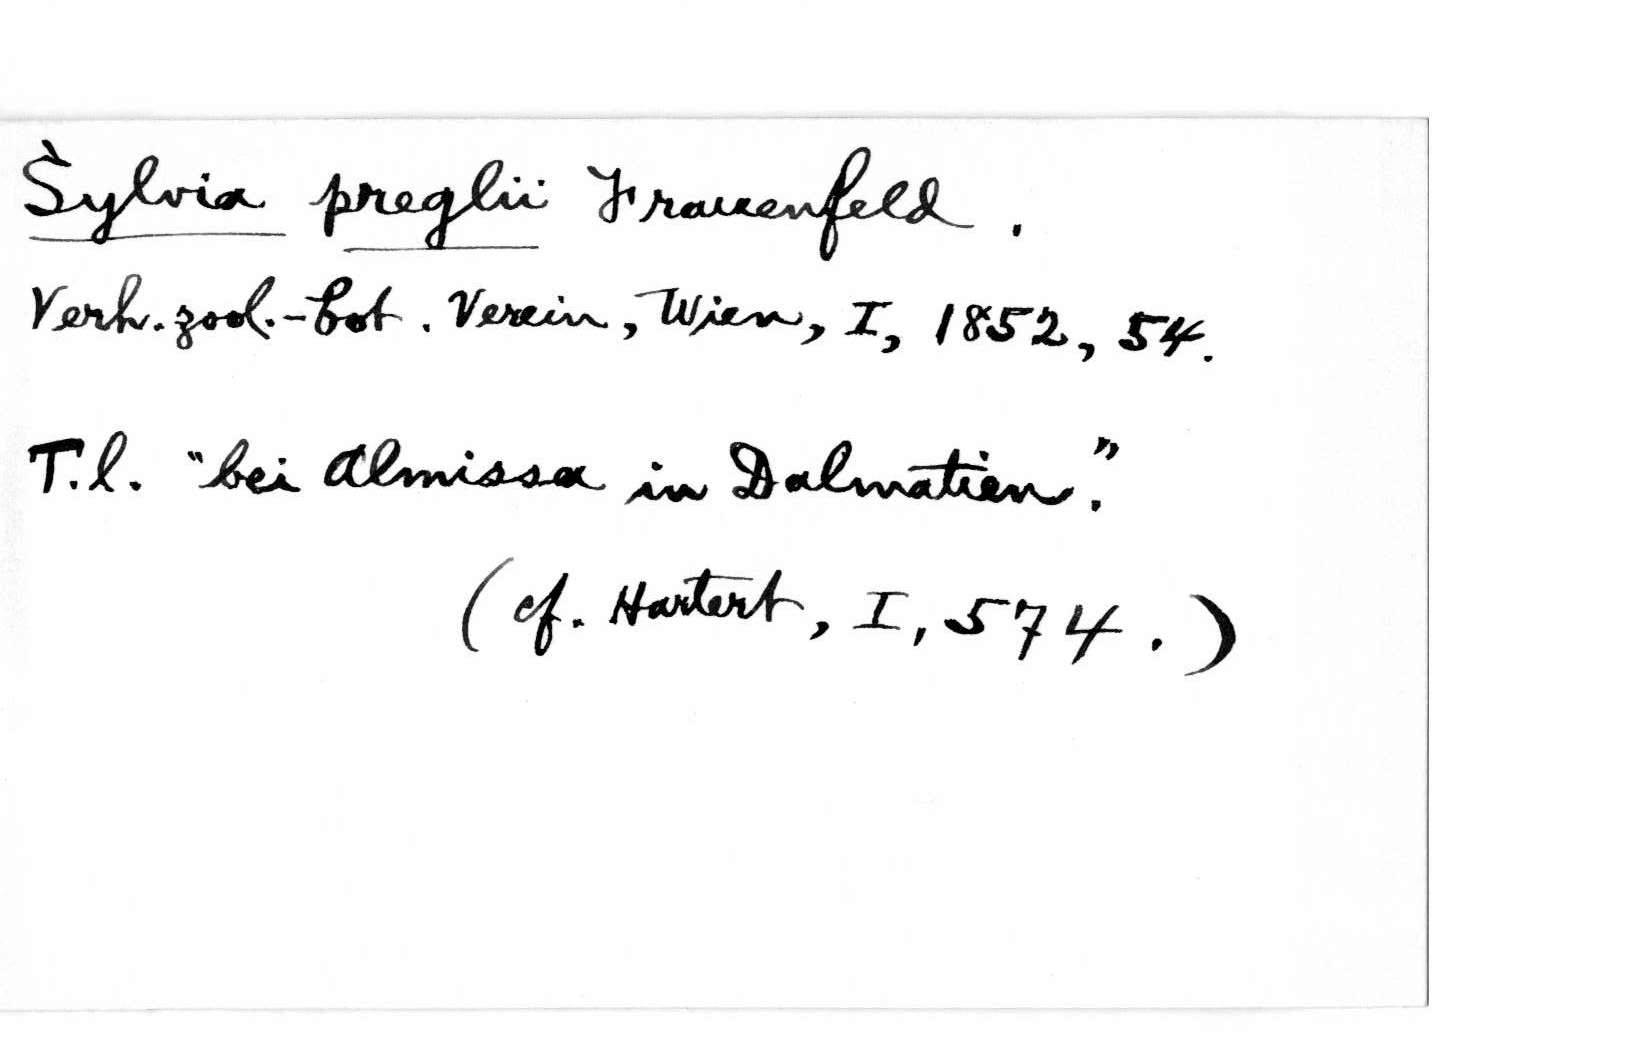 Sylvia preglii Frauenfeld.
Verh. zool.-bot. Verein, Wien, I, 1852, 54.
T.l. "bei Almissa in Dalmatien."
(cf. Hartert, I, 574.)